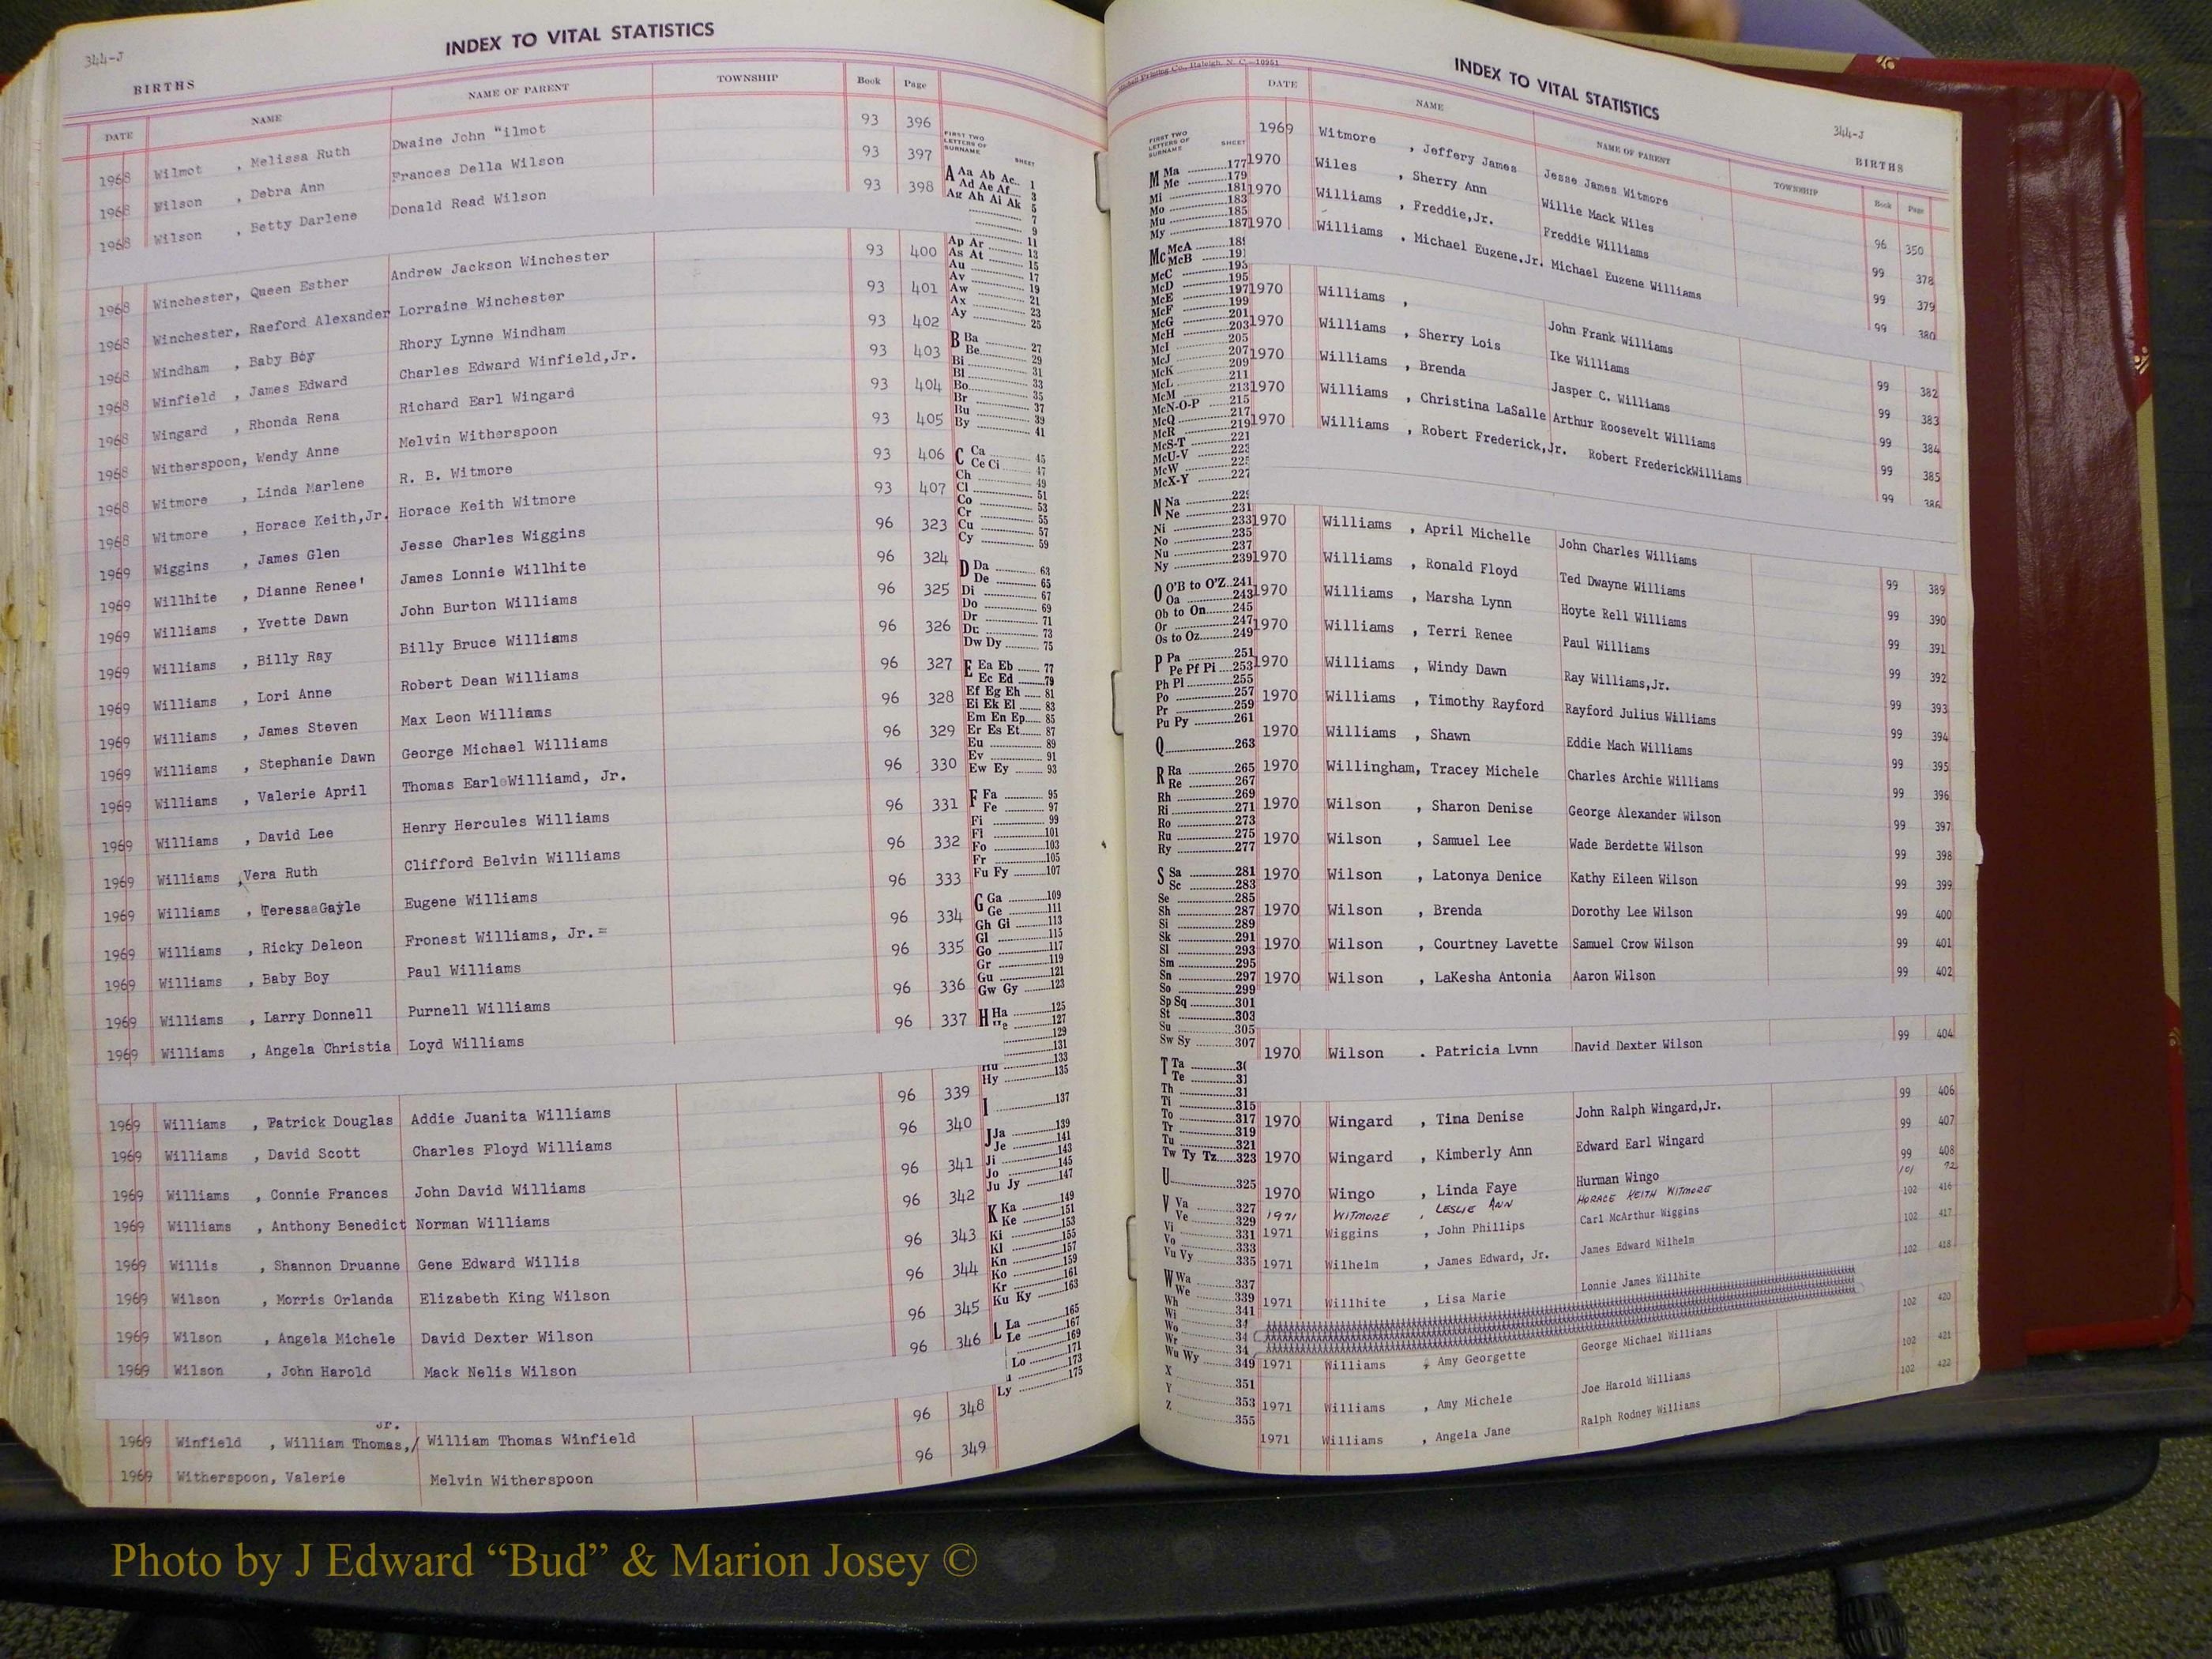 344-J
INDEX TO VITAL STATISTICS
BIRTHS
DATE NAME NAME OF PARENT TOWNSHIP Book Page
1968 Wilmot , Melissa Ruth Dwaine John "ilmot 93 396
1968 Wilson , Debra Ann Frances Della Wilson 93 397
1968 Wilson , Betty Darlene Donald Read Wilson 93 398
1968 Winchester, Queen Esther Andrew Jackson Winchester 93 400
1968 Winchester, Raeford Alexander Lorraine Winchester 93 401
1968 Windham , Baby Boy Rhory Lynne Windham 93 402
1968 Winfield , James Edward Charles Edward Winfield,Jr. 93 403
1968 Wingard , Rhonda Rena Richard Earl Wingard 93 404
1968 Witherspoon, Wendy Anne Melvin Witherspoon 93 405
1968 Witmore , Linda Marlene R. B. Witmore 93 406
1968 Witmore , Horace Keith,Jr. Horace Keith Witmore 93 407
1969 Wiggins , James Glen Jesse Charles Wiggins 96 323
1969 Willhite , Dianne Renee' James Lonnie Willhite 96 324
1969 Williams , Yvette Dawn John Burton Williams 96 325
1969 Williams , Billy Ray Billy Bruce Williams 96 326
1969 Williams , Lori Anne Robert Dean Williams 96 327
1969 Williams , James Steven Max Leon Williams 96 328
1969 Williams , Stephanie Dawn George Michael Williams 96 329
1969 Williams , Valerie April Thomas Earl Williamd, Jr. 96 330
1969 Williams , David Lee Henry Hercules Williams 96 331
1969 Williams ,Vera Ruth Clifford Belvin Williams 96 332
1969 Williams , Teresa Gayle Eugene Williams 96 333
1969 Williams , Ricky Deleon Fronest Williams, Jr.= 96 334
1969 Williams , Baby Boy Paul Williams 96 335
1969 Williams , Larry Donnell Purnell Williams 96 336
1969 Williams , Angela Christia Loyd Williams 96 337
1969 Williams , Patrick Douglas Addie Juanita Williams 96 339
1969 Williams , David Scott Charles Floyd Williams 96 340
1969 Williams , Connie Frances John David Williams 96 341
1969 Williams , Anthony Benedict Norman Williams 96 342
1969 Willis , Shannon Druanne Gene Edward Willis 96 343
1969 Wilson , Morris Orlanda Elizabeth King Wilson 96 344
1969 Wilson , Angela Michele David Dexter Wilson 96 345
1969 Wilson , John Harold Mack Nelis Wilson 96 346
Jr.
1969 Winfield , William Thomas,/ William Thomas Winfield 96 348
1969 Witherspoon, Valerie Melvin Witherspoon 96 349
FIRST TWO
LETTERS OF
SURNAME SHEET
A Aa Ab Ac 1
Ad Ae Af 3
Ag Ah Ai Ak 5
7
9
Ap Ar 11
As At 13
Au 15
Av 17
Aw 19
Ax 21
Ay 23
25
B Ba 27
Be 29
Bi 31
Bl 33
Bo 35
Br 37
Bu 39
By 41
C Ca 45
Ce Ci 47
Ch 49
Cl 51
Co 53
Cr 55
Cu 57
Cy 59
D Da 63
De 65
Di 67
Do 69
Dr 71
Du 73
Dw Dy 75
E Ea Eb 77
Ec Ed 79
Ef Eg Eh 81
Ei Ek El 83
Em En Ep 85
Er Es Et 87
Eu 89
Ev 91
Ew Ey 93
F Fa 95
Fe 97
Fi 99
Fl 101
Fo 103
Fr 105
Fu Fy 107
G Ga 109
Ge 111
Gh Gi 113
Gl 115
Go 117
Gr 119
Gu 121
Gw Gy 123
H Ha 125
127
129
131
Hu 133
Hy 135
I 137
J Ja 139
Je 141
Ji 143
Jo 145
Ju Jy 147
K Ka 149
Ke 151
Ki 153
Kl 155
Kn 157
Ko 159
Kr 161
Ku Ky 163
L La 165
Le 167
169
Lo 171
173
Ly 175
Printing Co., Raleigh, N. C.—10951
INDEX TO VITAL STATISTICS
344-J
BIRTHS
DATE NAME NAME OF PARENT TOWNSHIP Book Page
FIRST TWO
LETTERS OF
SURNAME SHEET
M Ma 177
Me 179
Mi 181
Mo 183
Mu 185
My 187
Mc McA
McB
McC 193
McD 195
McE 197
McF 199
McG 201
McH 203
McI 205
McJ 207
McK 209
McL 211
McM 213
McN-O-P 215
McQ 217
McR 219
McS-T 221
McU-V
McW
McX-Y 227
N Na
Ne 231
Ni 233
No 235
Nu 237
Ny 239
O O'B to O'Z 241
Oa 243
Ob to On 245
Or 247
Os to Oz 249
P Pa 251
Pe Pf Pi 253
Ph Pl 255
Po 257
Pr 259
Pu Py 261
Q 263
R Ra 265
Re 267
Rh 269
Ri 271
Ro 273
Ru 275
Ry 277
S Sa 281
Sc 283
Se 285
Sh 287
Si 289
Sk 291
Sl 293
Sm 295
Sn 297
So 299
Sp Sq 301
St 303
Su 305
Sw Sy 307
T Ta
Te
Th
Ti 315
To 317
Tr 319
Tu 321
Tw Ty Tz 323
U 325
V Va 327
Ve 329
Vi 331
Vo 333
Vu Vy 335
W Wa 337
We 339
Wh 341
Wi
Wo
Wr
Wu Wy 349
X 351
Y 353
Z 355
1969 Witmore , Jeffery James Jesse James Witmore 96 350
1970 Wiles , Sherry Ann Willie Mack Wiles 99 378
1970 Williams , Freddie,Jr. Freddie Williams 99 379
1970 Williams , Michael Eugene,Jr. Michael Eugene Williams 99 380
1970 Williams , John Frank Williams 99 382
1970 Williams , Sherry Lois Ike Williams 99 383
1970 Williams , Brenda Jasper C. Williams 99 384
1970 Williams , Christina LaSalle Arthur Roosevelt Williams 99 385
1970 Williams , Robert Frederick,Jr. Robert FrederickWilliams 99 386
1970 Williams , April Michelle John Charles Williams 99 389
1970 Williams , Ronald Floyd Ted Dwayne Williams 99 390
1970 Williams , Marsha Lynn Hoyte Rell Williams 99 391
1970 Williams , Terri Renee Paul Williams 99 392
1970 Williams , Windy Dawn Ray Williams,Jr. 99 393
1970 Williams , Timothy Rayford Rayford Julius Williams 99 394
1970 Williams , Shawn Eddie Mach Williams 99 395
1970 Willingham, Tracey Michele Charles Archie Williams 99 396
1970 Wilson , Sharon Denise George Alexander Wilson 99 397
1970 Wilson , Samuel Lee Wade Berdette Wilson 99 398
1970 Wilson , Latonya Denice Kathy Eileen Wilson 99 399
1970 Wilson , Brenda Dorothy Lee Wilson 99 400
1970 Wilson , Courtney Lavette Samuel Crow Wilson 99 401
1970 Wilson , LaKesha Antonia Aaron Wilson 99 402
1970 Wilson , Patricia Lynn David Dexter Wilson 99 404
1970 Wingard , Tina Denise John Ralph Wingard,Jr. 99 406
1970 Wingard , Kimberly Ann Edward Earl Wingard 99 407
1970 Wingo , Linda Faye Hurman Wingo 99 408
1971 WITMORE , LESLIE ANN HORACE KEITH WITMORE 101 72
1971 Wiggins , John Phillips Carl McArthur Wiggins 102 416
1971 Wilhelm , James Edward, Jr. James Edward Wilhelm 102 417
1971 Willhite , Lisa Marie Lonnie James Willhite 102 418
1971 Williams , Amy Georgette George Michael Williams 102 420
1971 Williams , Amy Michele Joe Harold Williams 102 421
1971 Williams , Angela Jane Ralph Rodney Williams 102 422
Photo by J Edward “Bud” & Marion Josey ©